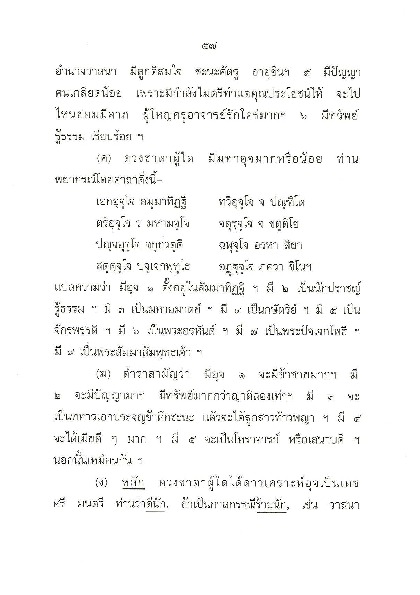 ๕๗
อำนาจวาสนา มีลูกดีสมใจ ชะนะศัตรู อายุยืนฯ ๕ มีปัญญา
คนเกลียดน้อย เพราะมีกำลังไมตรีทำแจคุณประโยชน์ให้ จะไป
ไหนย่อมมีลาภ ผู้ใหญ่ครูอาจารย์รักใคร่มากฯ ๖ มีทรัพย์
รู้ธรรม เรียบร้อย ฯ
(ค) ดวงชาตาผู้ใด มีมหาอุจมากหรือน้อย ท่าน
พยากรณ์โดยคาถาดั่งนี้–
เอกอุจฺโจ สมฺมาทิฏฺฐิ ทวิอุจฺโจ จ ปณฺฑิโต
ตรีอุจฺโจ จ มหามจฺโจ จตุรุจฺโจ จ ขตฺติโย
ปญฺจอุจฺโจ จกฺกวตฺติ ฉฬุจฺโจ อรหา สิยา
สตฺตุจฺโจ ปจฺเจกพุทฺโธ อฏฺฐุจฺโจ ภควา ชิโนฯ
แปลความว่า มีอุจ ๑ ตั้งอยู่ในสัมมาทิฏฐิ ฯ มี ๒ เป็นนักปราชญ์
รู้ธรรม ฯ มี ๓ เป็นมหาอมาตย์ ฯ มี ๔ เป็นกษัตริย์ ฯ มี ๕ เป็น
จักรพรรดิ ฯ มี ๖ เป็นพระอรหันต์ ฯ มี ๗ เป็นพระปัจเจกโพธิ ฯ
มี ๘ เป็นพระสัมมาสัมพุทธเจ้า ฯ
(ฆ) ตำราสามัญว่า มีอุจ ๑ จะมีข้าชายมากฯ มี
๒ จะมีปัญญามาก มีทรัพย์มากกว่าญาติสองเท่าฯ มี ๓ จะ
เป็นทหารเอาประจญข้าศึกชะนะ แล้วจะได้ลูกสาวท้าวพญา ฯ มี ๔
จะได้เมียดี ๆ มาก ฯ มี ๕ จะเป็นโหราจารย์ หรือเสนาบดี ฯ
นอกนั้นเหมือนกัน ฯ
(ง) หลัก ดวงชาตาผู้ใดได้ดาวเคราะห์อุจเป็นเดช
ศรี มนตรี ท่านว่าดีนัก, ถ้าเป็นกาลกรรณีร้ายนัก, เช่น วาสนา